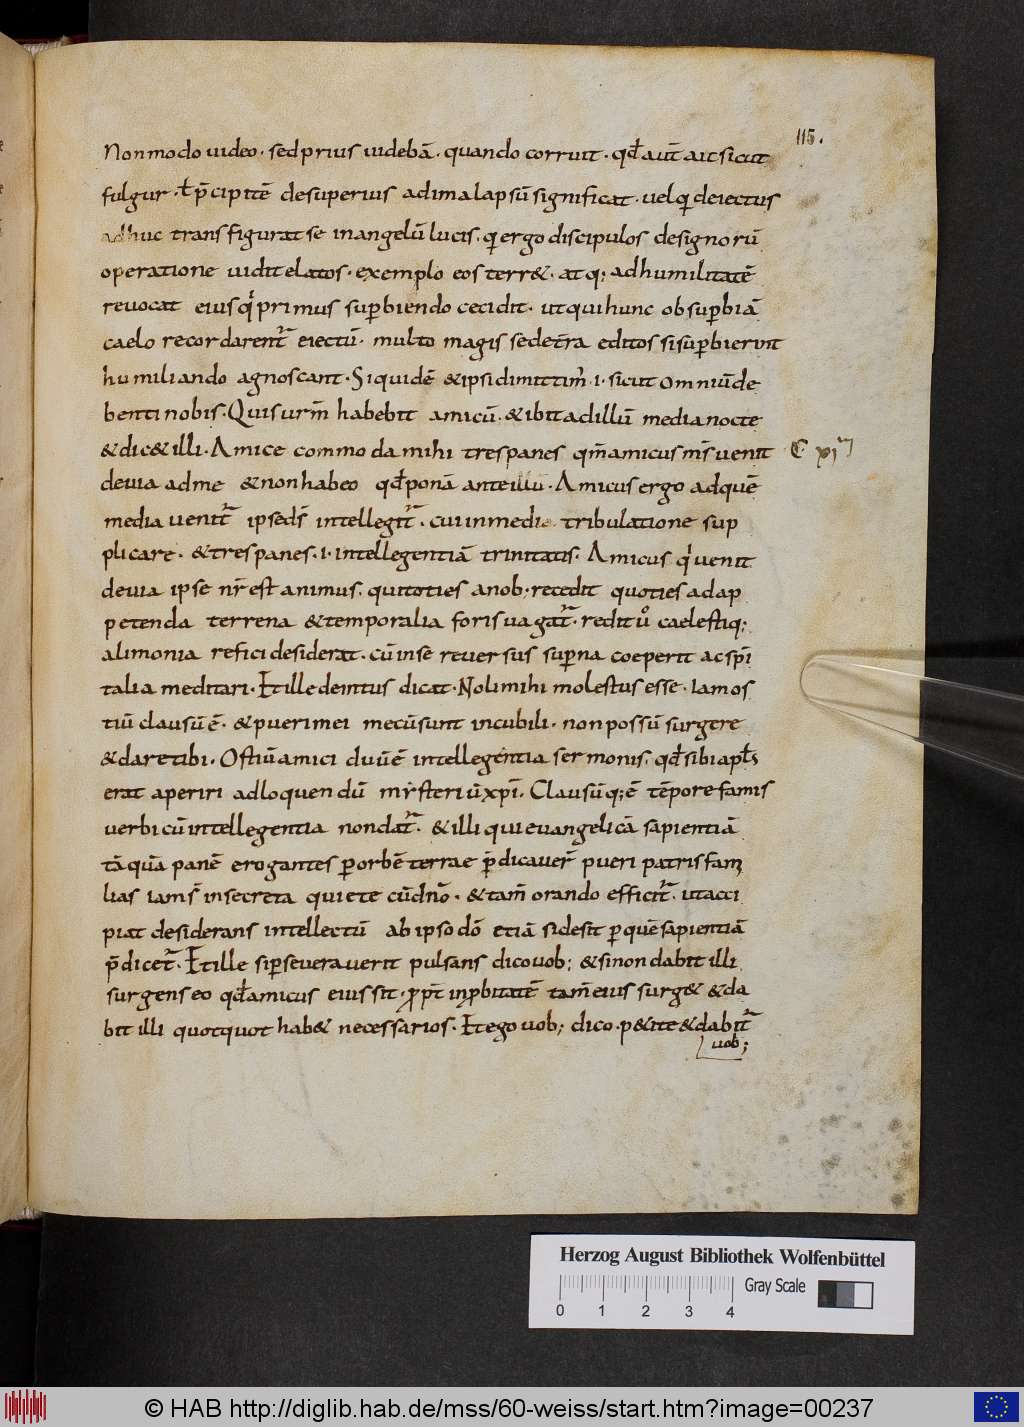 115.
Non modo uideo · sed prius uidebā · quando corruit · qđ aut̄ ait sicut
fulgur · ł p̄cipitē desuperius ad ima lapsū significat · uel q deiectus
adhuc transfigurat se in angelū lucis · q ergo discipulos designorū
operatione uidit elatos · exemplo eos terr& · atq; ad humilitatē
reuocat eius q primus sup̄biendo cecidit · ut qui hunc ob sup̄biā
caelo recordarent᷑ eiectū · multo magis sede t̄ra editos si sup̄bierint
humiliando agnoscant · Siquidē & ipsi dimittim᷑ · i · sicut omni ūde
benti nobis · Quis urm̄ habebit amicū · & ibit ad illū media nocte
& dic& illi · Amice commoda mihi tres panes qm̄ amicus m̄s uenit
de uia ad me & non habeo qđ ponā ante illū · Amicus ergo ad quē
media uenit᷑ ipse d̄s intellegit᷑ · cui in media tribulatione sup
plicare · & tres panes · i · intellegentiā trinitatis · Amicus q uenit
de uia ipse nr̄ est animus · qui toties a nob; recedit quoties ad ap
petenda terrena & temporalia foris uagat᷑ · redit uͦ caelestiq;
alimonia refici desiderat · cū in se reuersus sup̄na coeperit ac sp̄i
talia meditari · Et ille deintus dicat · Noli mihi molestus esse · iam os
tiū clausū ē · & pueri mei mecū sunt in cubili · non possū surgere
& dare tibi · Ostiū amici diuiē intellegentia sermonis · qđ sibi apłs
erat aperiri ad loquendū mysteriū xp̄i · Clausūq; ē tēpore famis
uerbi cū intellegentia non dat᷑ · & illi qui euangelicā sapientiā
tāquā panē erogantes p orbē terrae p̄dicauer̄ pueri patris fam
lias iam s̄ in secreta quiete cū dn̄o · & tam̄ orando efficit᷑ · ut acci
piat desiderans intellectū ab ipso dō etiā si desit p quē sapientiā
p̄dicet᷑ · Et ille si pseuerauerit pulsans dico uob; & si non dabit illi
surgens eo qđ amicus eius sit · ppt̄ inpbitatē tam̄ eius surg& & da
bit illi quotquot hab& necessarios · Et ego uob; dico · p&ite & dabit᷑
uob;
Herzog August Bibliothek Wolfenbüttel
0 1 2 3 4 Gray Scale
© HAB http://diglib.hab.de/mss/60-weiss/start.htm?image=00237